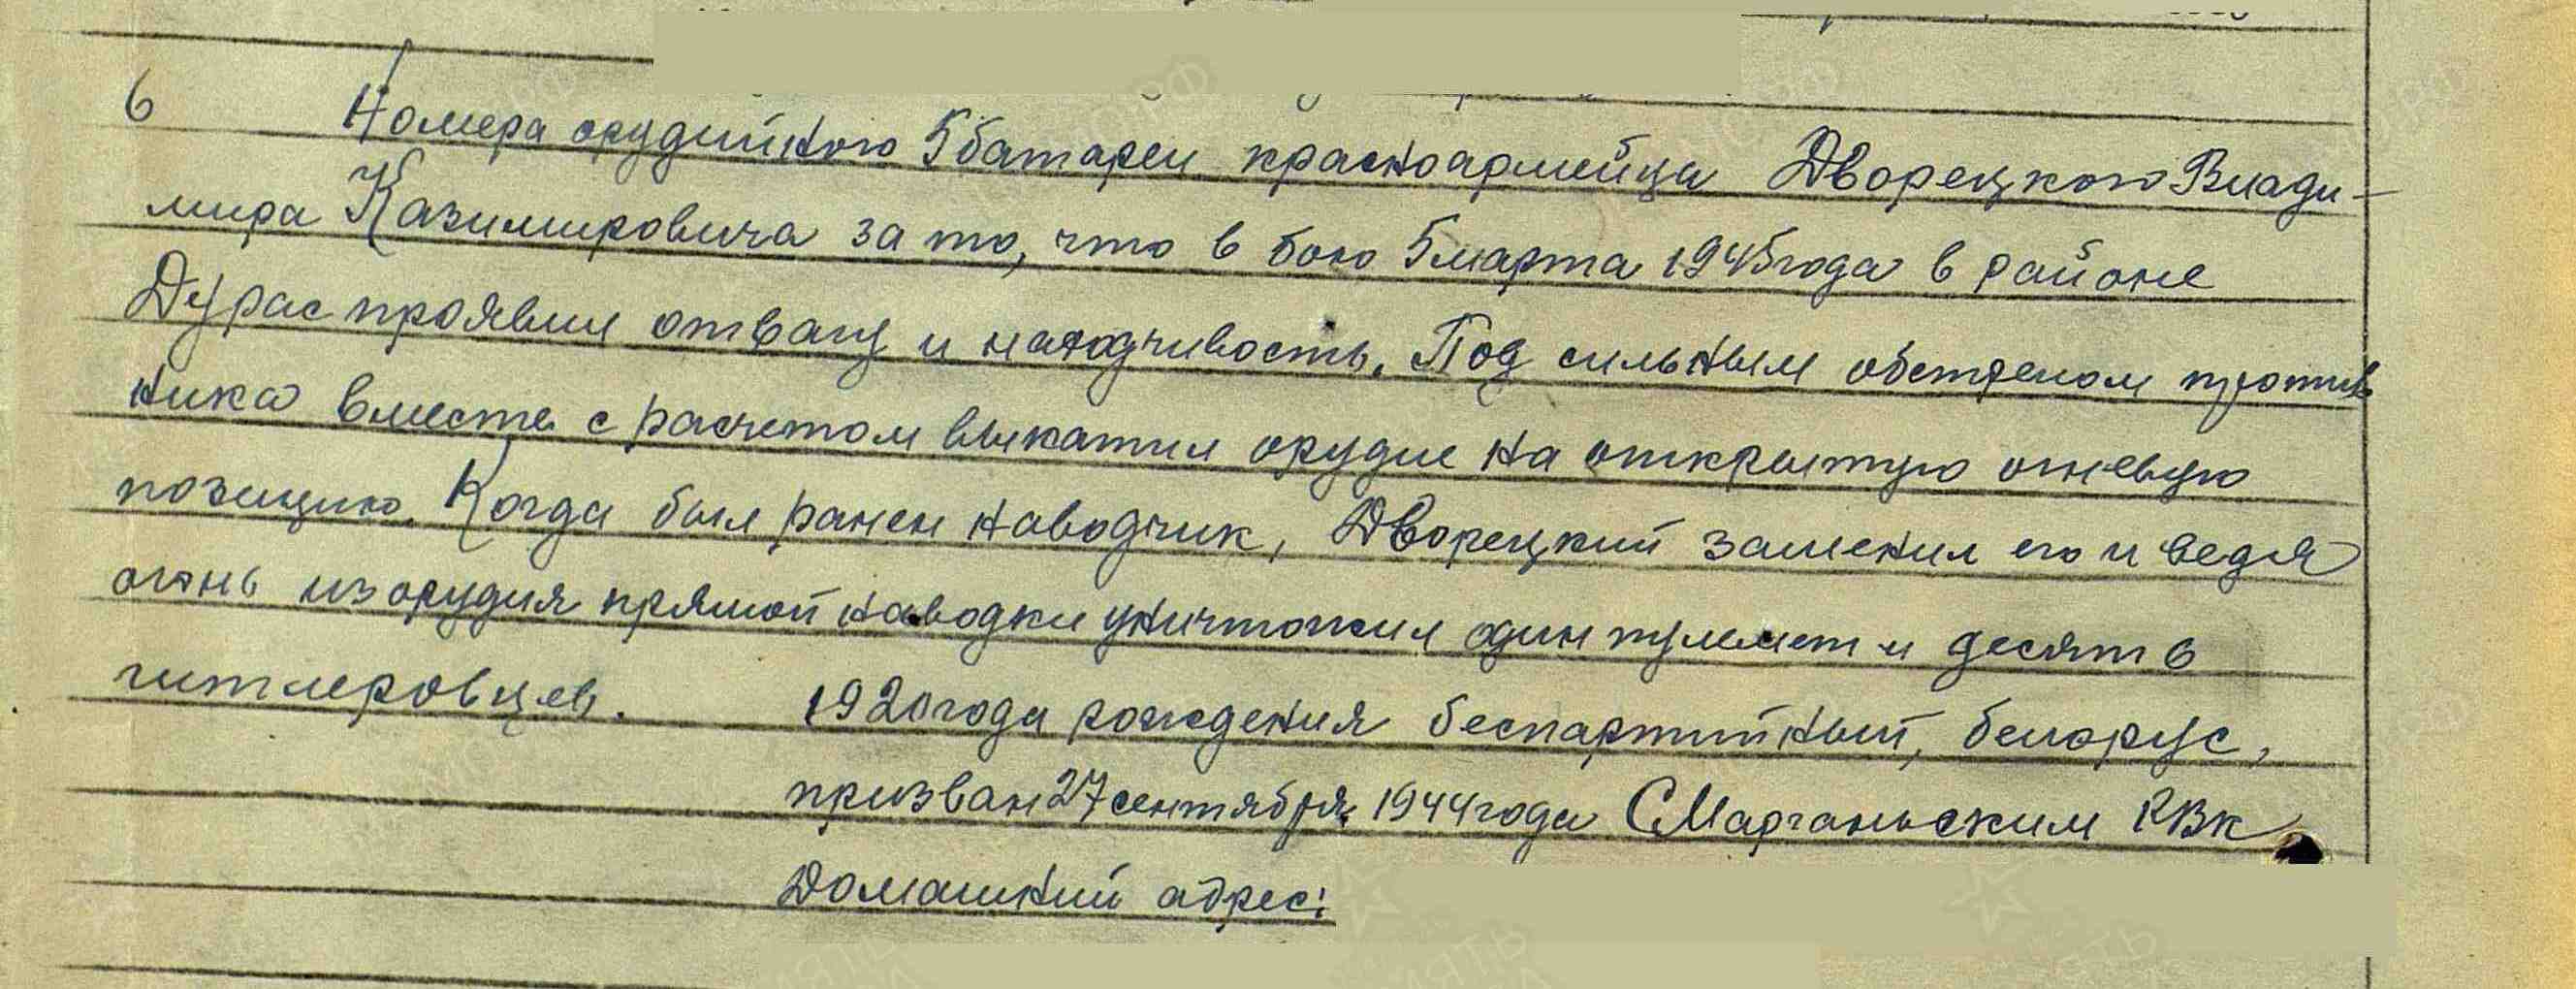 6 Номера орудийного 5 батареи красноармейца Дворецкого Влади-
мира Казимировича за то, что в бою 5 марта 1945 года в районе
Дурас проявил отвагу и находчивость. Под сильным обстрелом против
ника вместе с расчетом выкатил орудие на открытую огневую
позицию. Когда был ранен наводчик, Дворецкий заменил его и ведя
огонь из орудия прямой наводки уничтожил один пулемет и десять
гитлеровцев. 1920 года рождения беспартийный, белорус,
призван 27 сентября 1944 года СМаргоньским РВК
Домашний адрес: